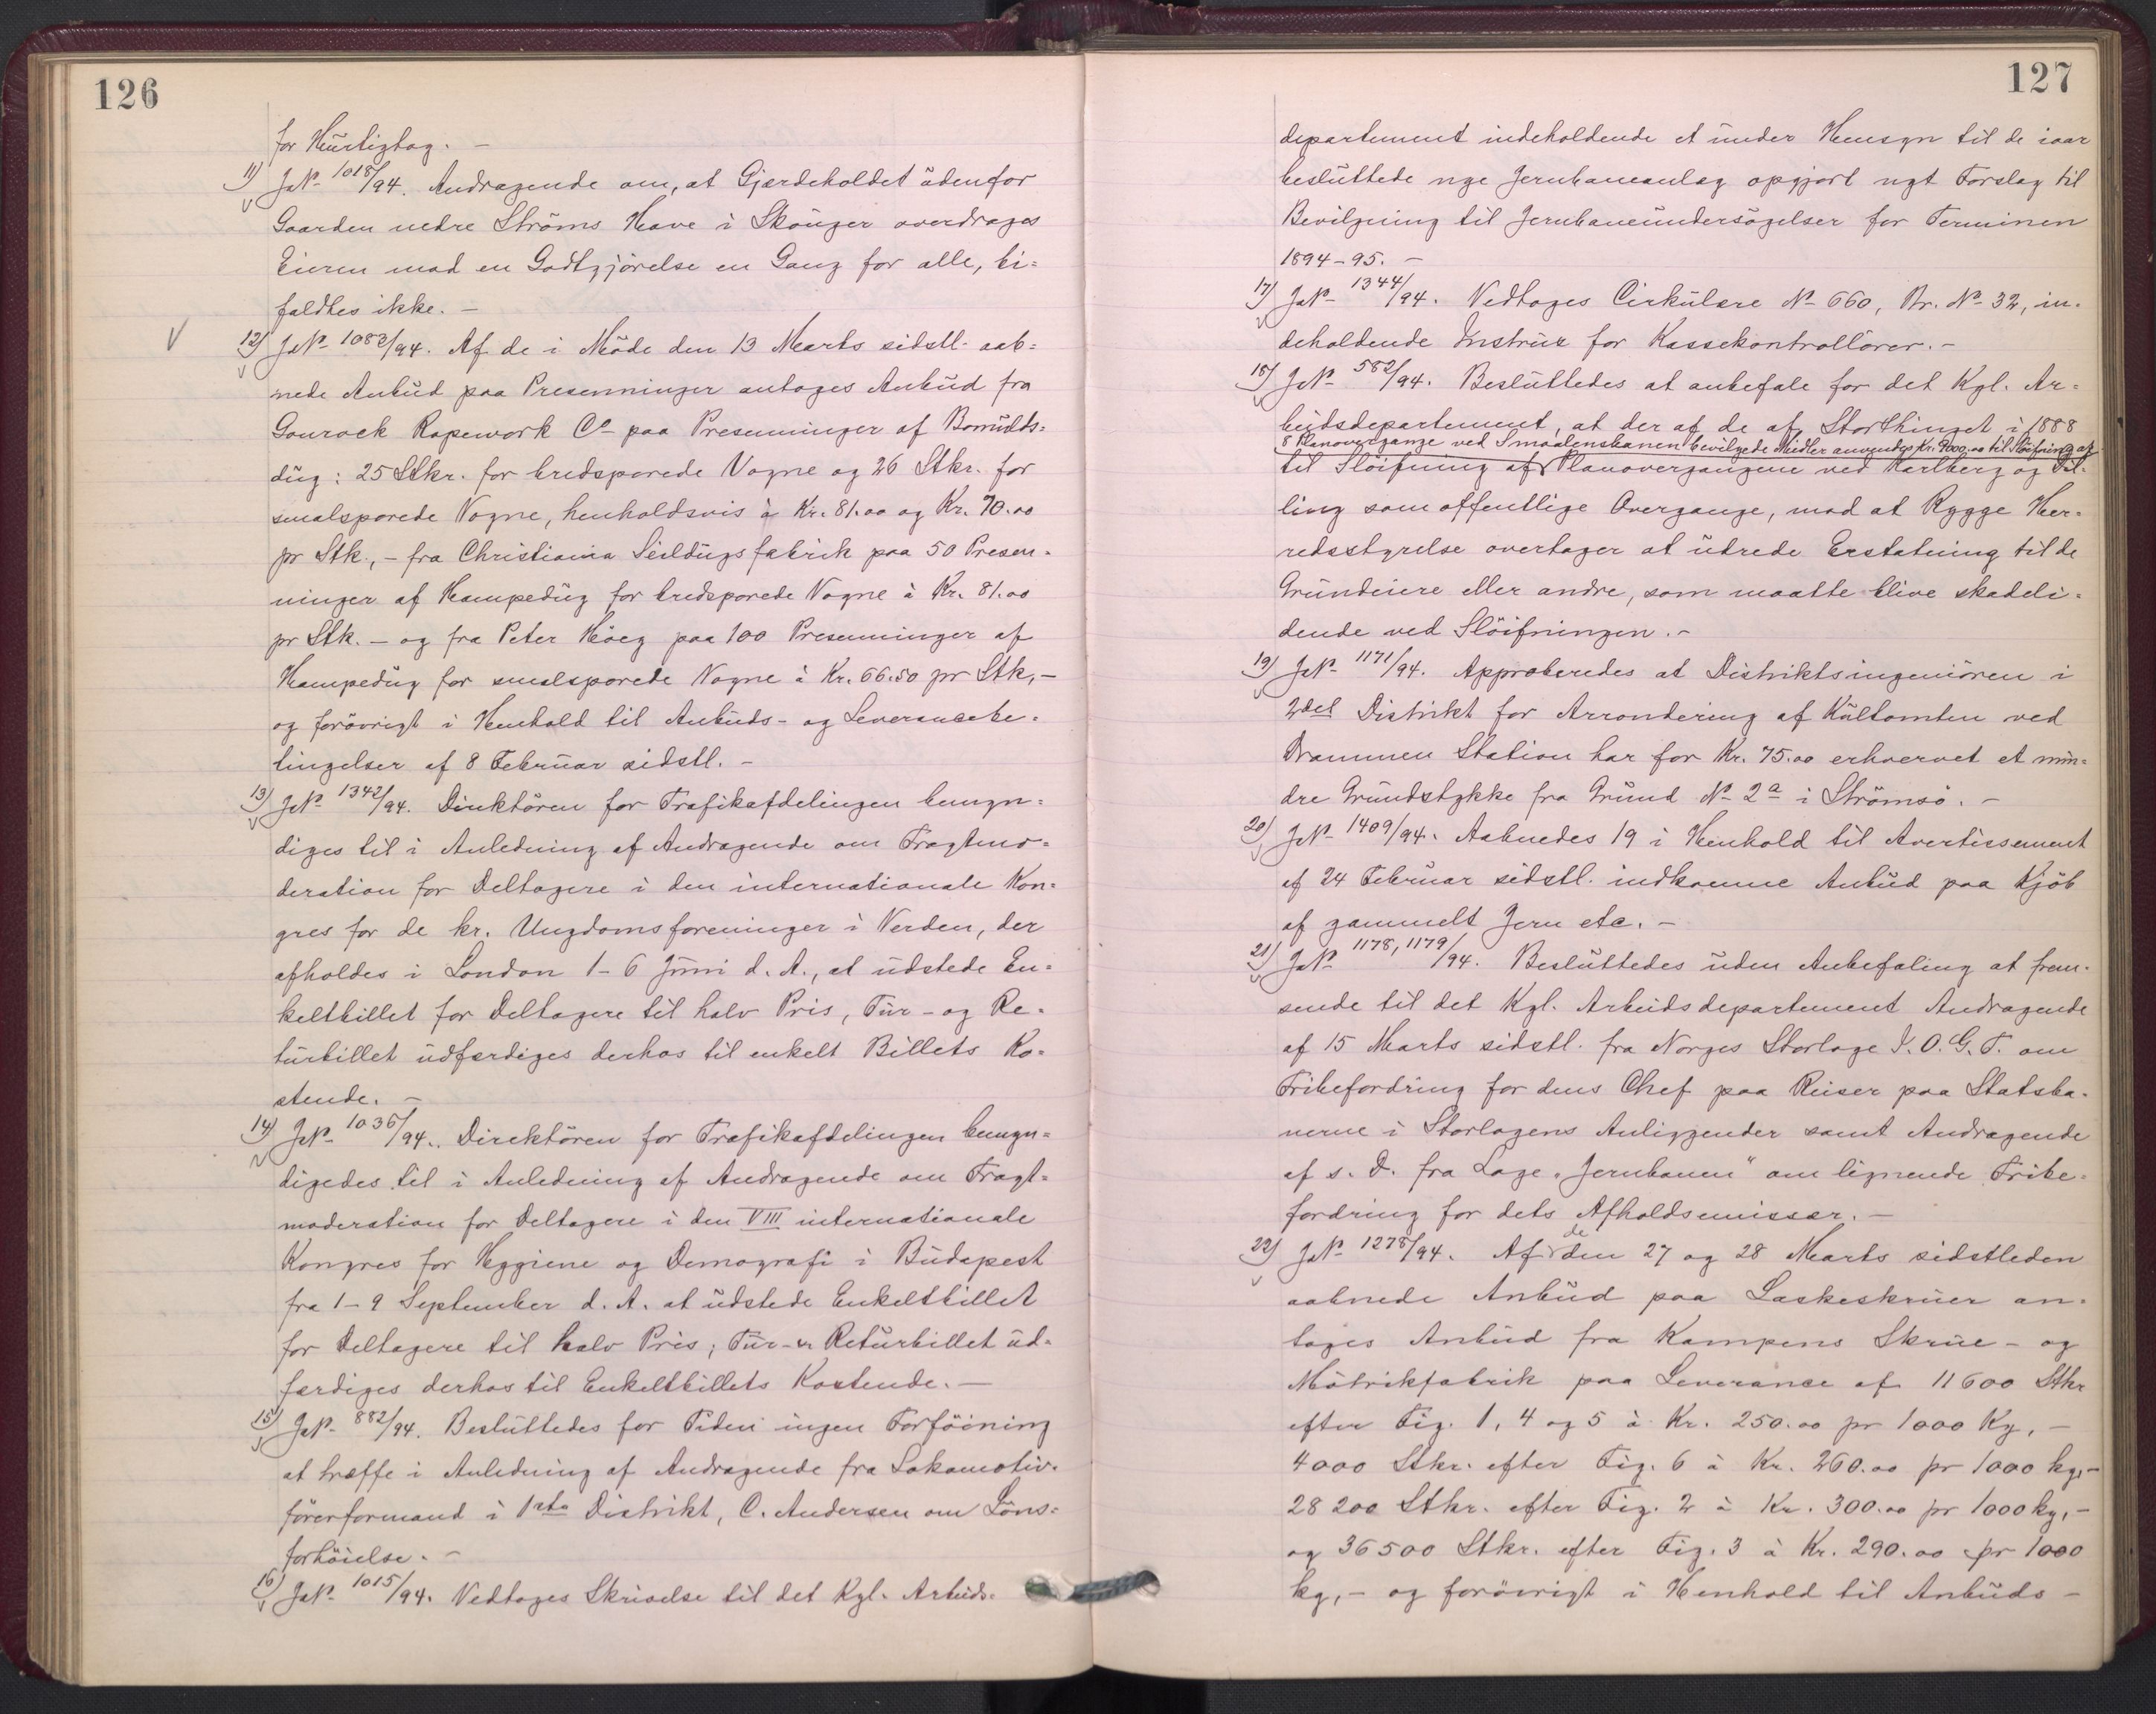 126
for Hurtigtog. -
11) JN° 1018/94. Andragende om, at Gjærdeholdet udenfor
Gaarden nedre Strøms Have i Skouger overdrages
Eieren mod en Godtgjörelse en Gang for alle, bi=
faldtes ikke. -
12) JN° 1083/94. Af de i Möde den 13 Marts sidstl. aab=
nede Anbud paa Presenninger antoges Anbud fra
Gourock Ropework C° paa Presenninger af Bomulds=
dug: 25 Stkr. for bredsporede Vogne og 26 Stkr. for
smalsporede Vogne, henholdsvis à Kr. 81.00 og Kr. 70.00
pr Stk., - fra Christiania Seildugsfabrik paa 50 Presen=
ninger af Hampedug for bredsporede Vogne à Kr. 81.00
pr Stk. - og fra Peter Höeg paa 100 Presenninger af
Hampedug for smalsporede Vogne à Kr. 66.50 pr Stk, -
og forövrigt i Henhold til Anbuds- og Leverancebe=
tingelser af 8 Februar sidstl. -
13) JN° 1342/94. Direktören for Trafikafdelingen bemyn=
diges til i Anledning af Andragende om Fragtmo=
deration for Deltagere i den internationale Kon=
gres for de kr. Ungdomsforeninger i Verden, der
afholdes i London 1-6 Juni d. A., at udstede En=
keltbillet for Deltagere til halv Pris, Tur- og Re=
turbillet udfærdiges derhos til enkelt Billets Ko=
stende. -
14) JN° 1036/94. Direktören for Trafikafdelingen bemyn=
digedes til i Anledning af Andragende om Fragt=
moderation for Deltagere i den VIII internationale
Kongres for Hygiene og Demografi i Budapest
fra 1-9 September d. A. at udstede Enkeltbillet
for Deltagere til halv Pris; Tur- og Returbillet ud=
færdiges derhos til Enkeltbillets Kostende. -
15) JN° 882/94. Besluttedes for Tiden ingen Forföining
at træffe i Anledning af Andragende fra Lokomotiv=
förerformand i 1ste Distrikt, C. Andersen om Löns=
forhöielse. -
16) JN° 1015/94. Vedtoges Skrivelse til det Kgl. Arbeids=
127
departement indeholdende et under Hensyn til de iaar
besluttede nye Jernbaneanlæg opgjort nyt Forslag til
Bevilgning til Jernbaneundersögelser for Terminen
1894-95. -
17) JN° 1344/94. Vedtoges Cirkulære N° 660, Br. N° 32, in=
deholdende Instrux for Kassekontrollörer. -
18) JN° 582/94. Besluttedes at anbefale for det Kgl. Ar=
beidsdepartement, at der af de af Storthinget i 1888
8 Planovergange ved Smaalensbanen bevilgede Midler anvendes Kr. 9000.00 til Slöifning af
til Slöifning af Planovergangene ved Karlberg og Dil=
ling som offentlige Overgange, mod at Rygge Her=
redsstyrelse overtager at udrede Erstatning til de
Grundeiere eller andre, som maatte blive skadeli=
dende ved Slöifningen. -
19) JN° 1171/94. Approberedes at Distriktsingeniören i
2det Distrikt for Arrondering af Kultomten ved
Drammen Station har for Kr. 75.00 erhvervet et min=
dre Grundstykke fra Grund N° 2a i Strömsö. -
20) JN° 1409/94. Aabnedes 19 i Henhold til Avertissement
af 24 Februar sidstl. indkomne Anbud paa Kjöb
af gammelt Jern etc. -
21) JN° 1178, 1179/94. Besluttedes uden Anbefaling at frem=
sende til det Kgl. Arbeidsdepartement Andragende
af 15 Marts sidstl. fra Norges Storloge I. O. G. T. om
Fribefordring for dens Chef paa Reiser paa Statsba=
nerne i Storlogens Anliggender samt Andragende
af s. D. fra Loge „Jernbanen" om lignende Fribe=
fordring for dets Afholdsemissær. -
22) JN° 1278/94. Af de den 27 og 28 Marts sidstleden
aabnede Anbud paa Laskeskruer an=
toges Anbud fra Kampens Skrue- og
Mötrikfabrik paa Leverance af 11600 Stkr
efter Fig. 1, 4 og 5 à Kr. 250.00 pr 1000 Kg, -
4000 Stkr. efter Fig. 6 à Kr. 260.00 pr 1000 kg, -
28200 Stkr. efter Fig. 2 à Kr. 300.00 pr 1000 kg, -
og 36500 Stkr. efter Fig. 3 à Kr. 290.00 pr 1000
kg, - og forövrigt i Henhold til Anbuds-